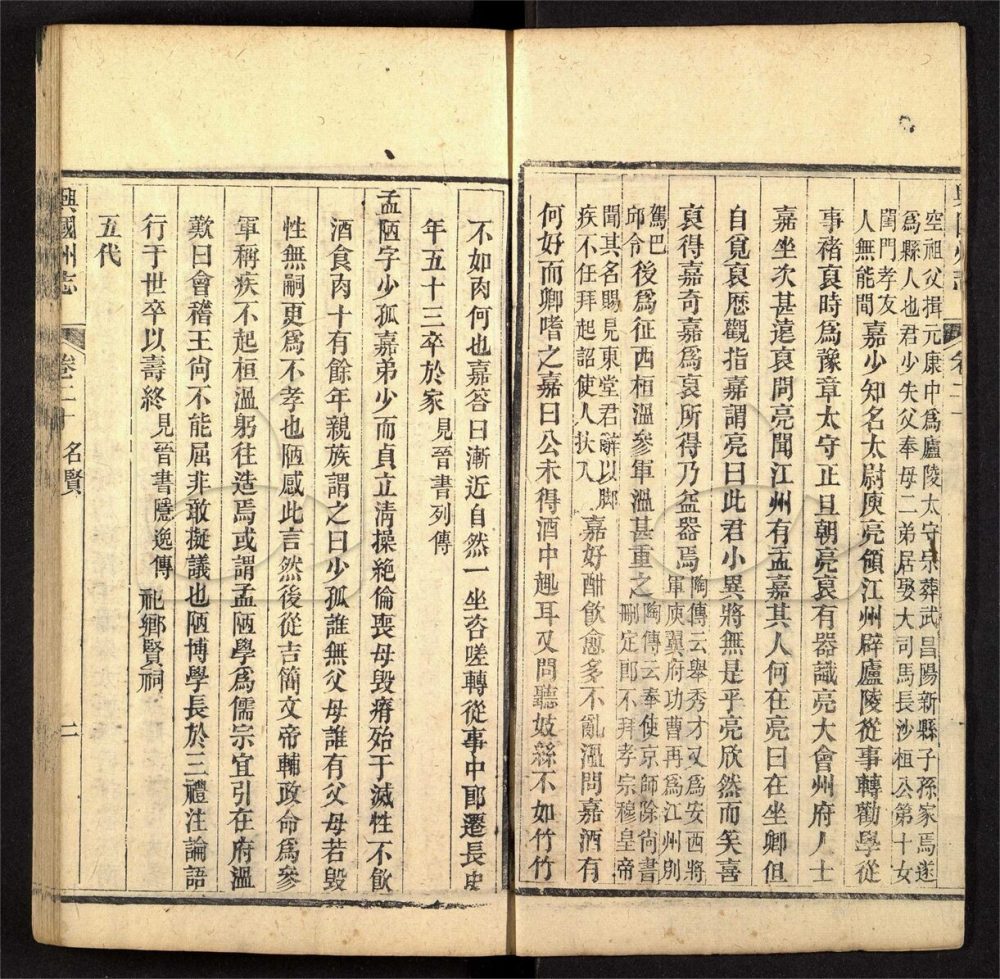 興國州志 卷二十 一
空祖父揖元康中爲廬陵太守宗葬武昌陽新縣子孫家焉遂
爲縣人也君少失父奉母二弟居娶大司馬長沙桓公第十女
閨門孝友人無能間嘉少知名太尉庾亮領江州辟廬陵從事轉勸學從
事褚裒時爲豫章太守正旦朝亮裒有器識亮大會州府人士
嘉坐次甚遠裒問亮聞江州有孟嘉其人何在亮曰在坐卿但
自覓裒歷觀指嘉謂亮曰此君小異將無是乎亮欣然而笑喜
裒得嘉奇嘉爲裒所得乃益器焉陶傳云舉秀才又爲安西將軍庾翼府功曹再爲江州別
駕巴邱令後爲征西桓溫參軍溫甚重之陶傳云奉使京師除尚書刪定郎不拜孝宗穆皇帝
聞其名賜見東堂君辭以脚疾不任拜起詔使人扶入嘉好酣飲愈多不亂溫問嘉酒有
何好而卿嗜之嘉曰公未得酒中趣耳又問聽妓絲不如竹竹
不如肉何也嘉答曰漸近自然一坐咨嗟轉從事中郎遷長史
年五十三卒於家見晉書列傳
孟陋字少孤嘉弟少而貞立淸操絶倫喪母毀瘠殆于滅性不飲
酒食肉十有餘年親族謂之曰少孤誰無父母誰有父母若毀
性無嗣更爲不孝也陋感此言然後從吉簡文帝輔政命爲參
軍稱疾不起桓溫躬往造焉或謂孟陋學爲儒宗宜引在府溫
歎曰會稽王尙不能屈非敢擬議也陋博學長於三禮注論語
行于世卒以壽終見晉書隱逸傳 祀鄕賢祠
五代
興國州志 卷二十 名賢 二